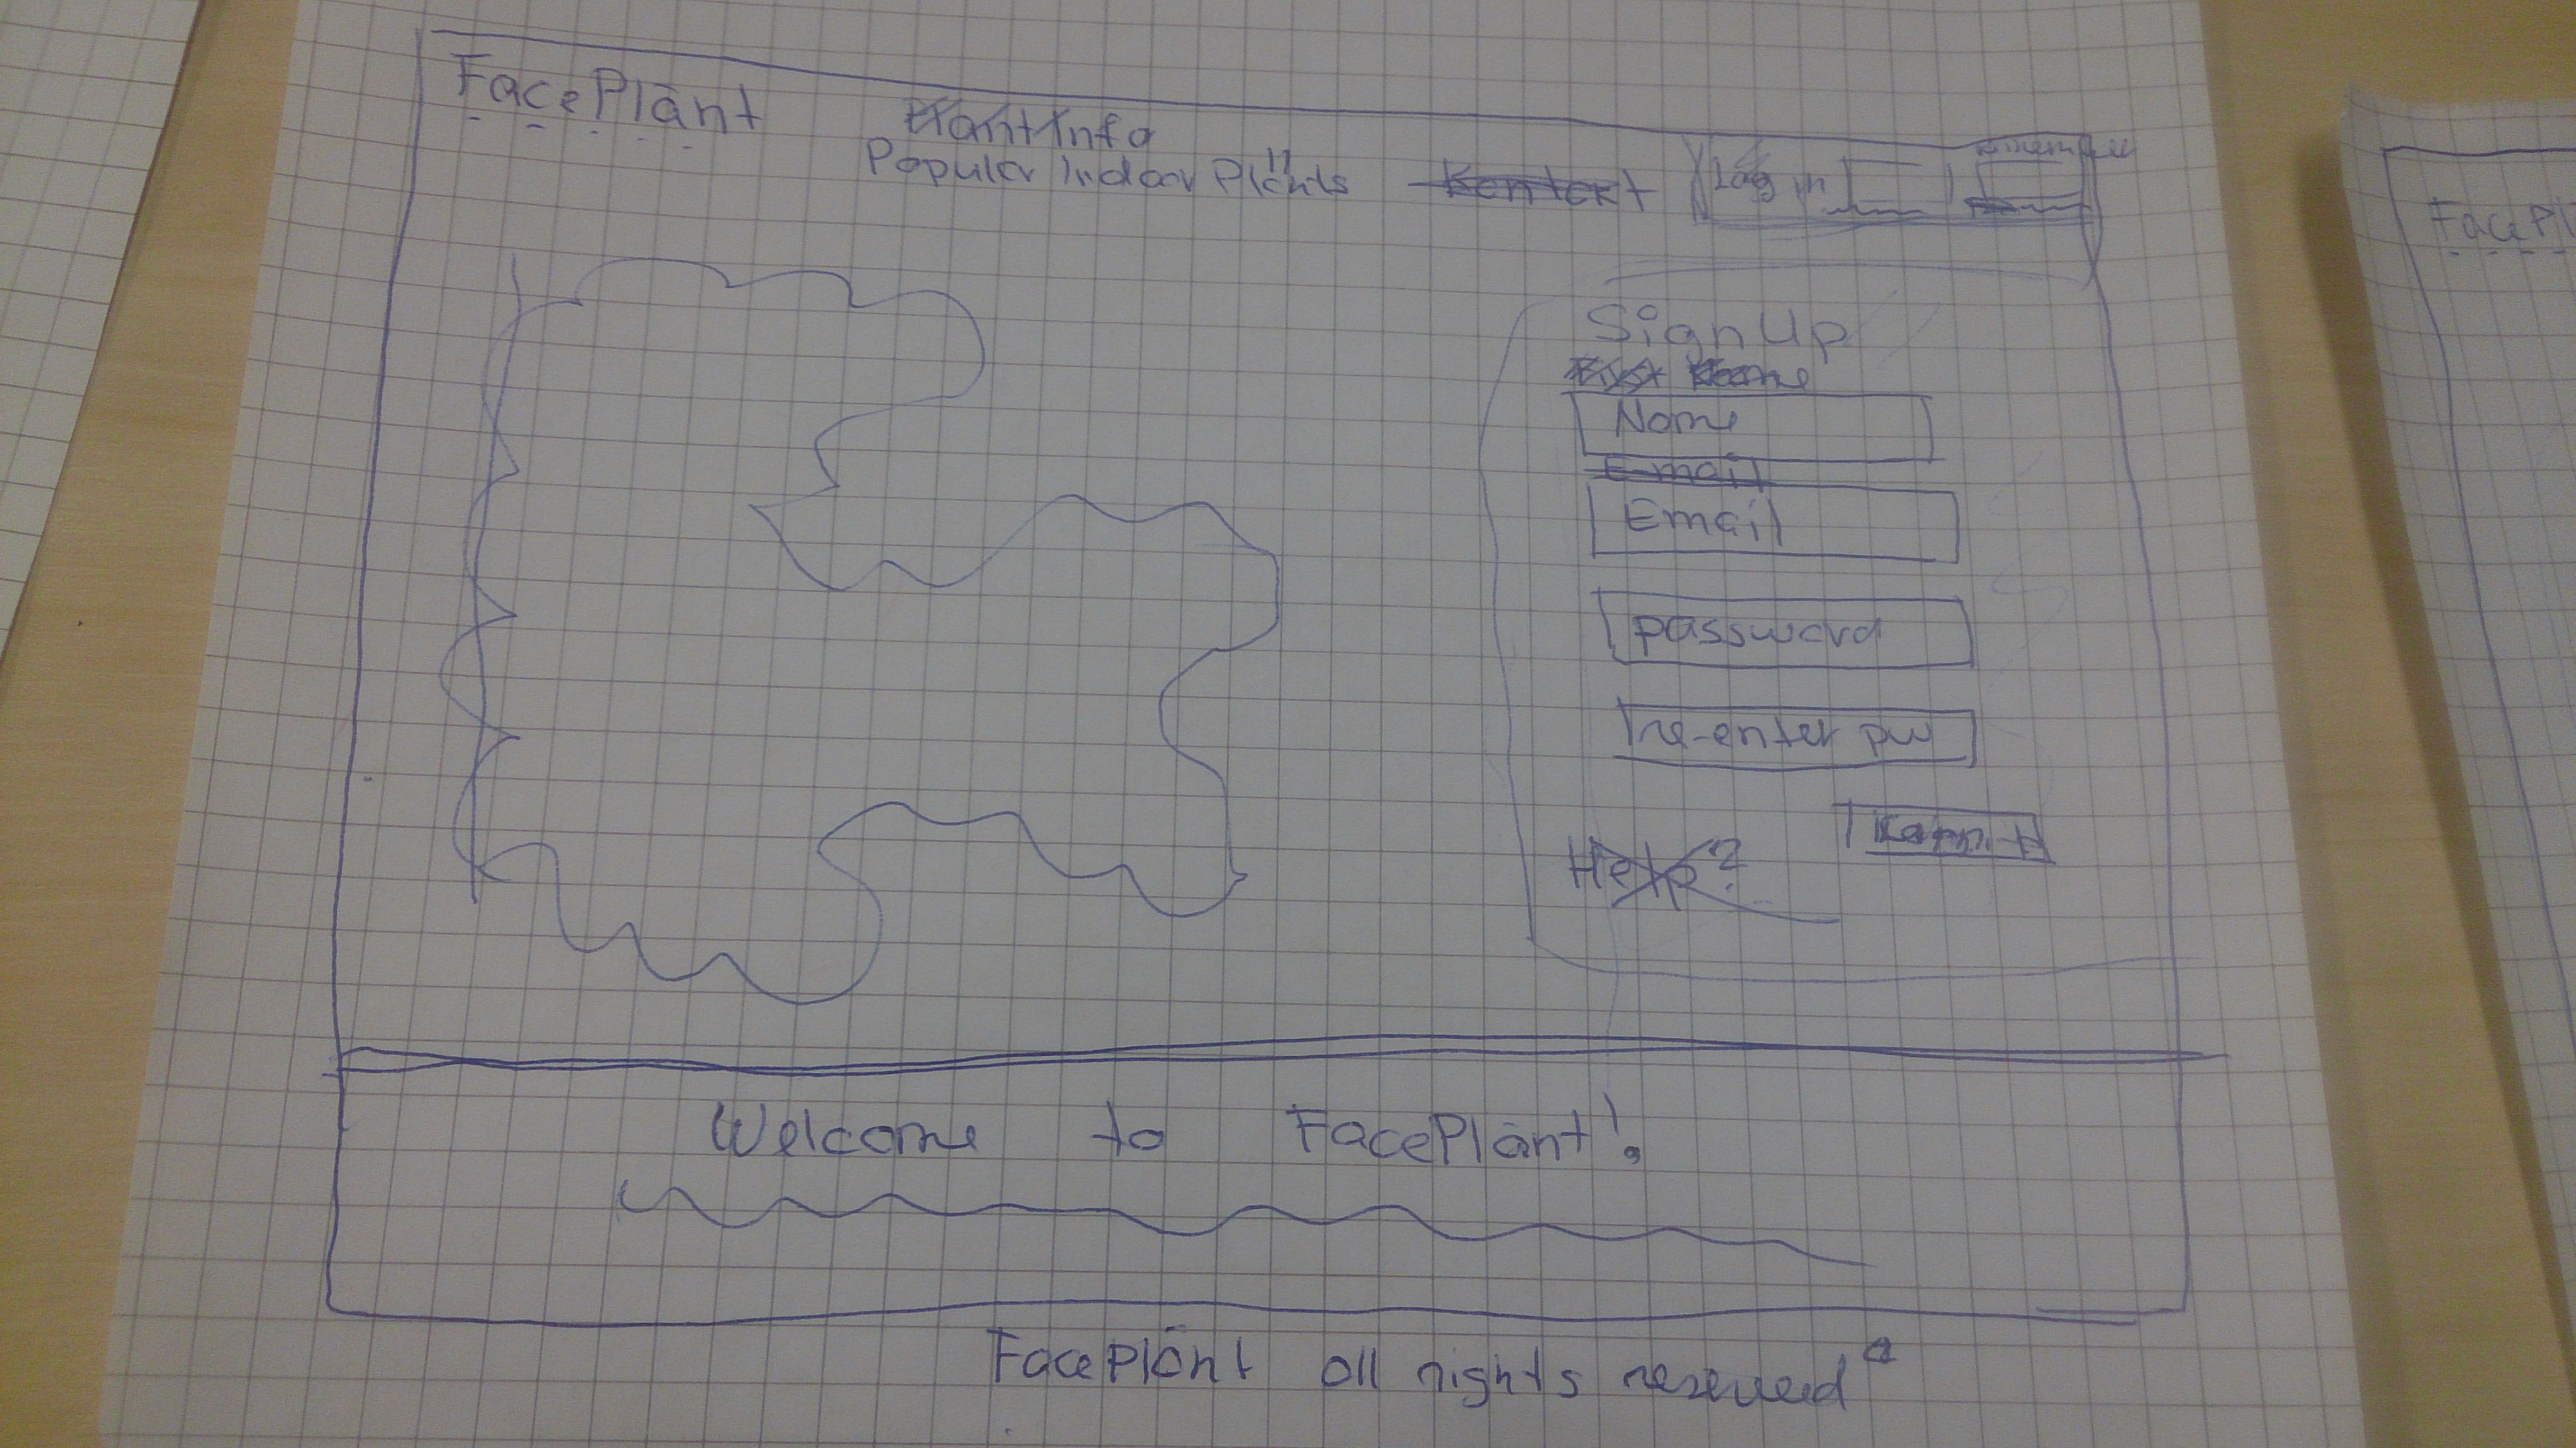 FacePlant
Plant Info
Popular Indoor Plants Kontakt Log in
Sign Up
First Name
Name
E-mail
Email
password
re-enter pw
Help?
Welcome to FacePlant!
FacePlant all rights reserved
FacePl